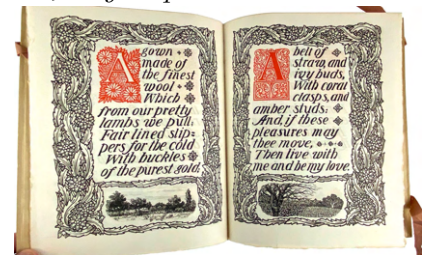 A gown
made of
the finest
wool
Which
from our pretty
lambs we pull.
Fair lined slip=
pers for the cold
With buckles
of the purest gold;
A belt of
straw and
ivy buds,
With coral
clasps, and
amber studs:
And, if these
pleasures may
thee move,
Then live with
me and be my love.